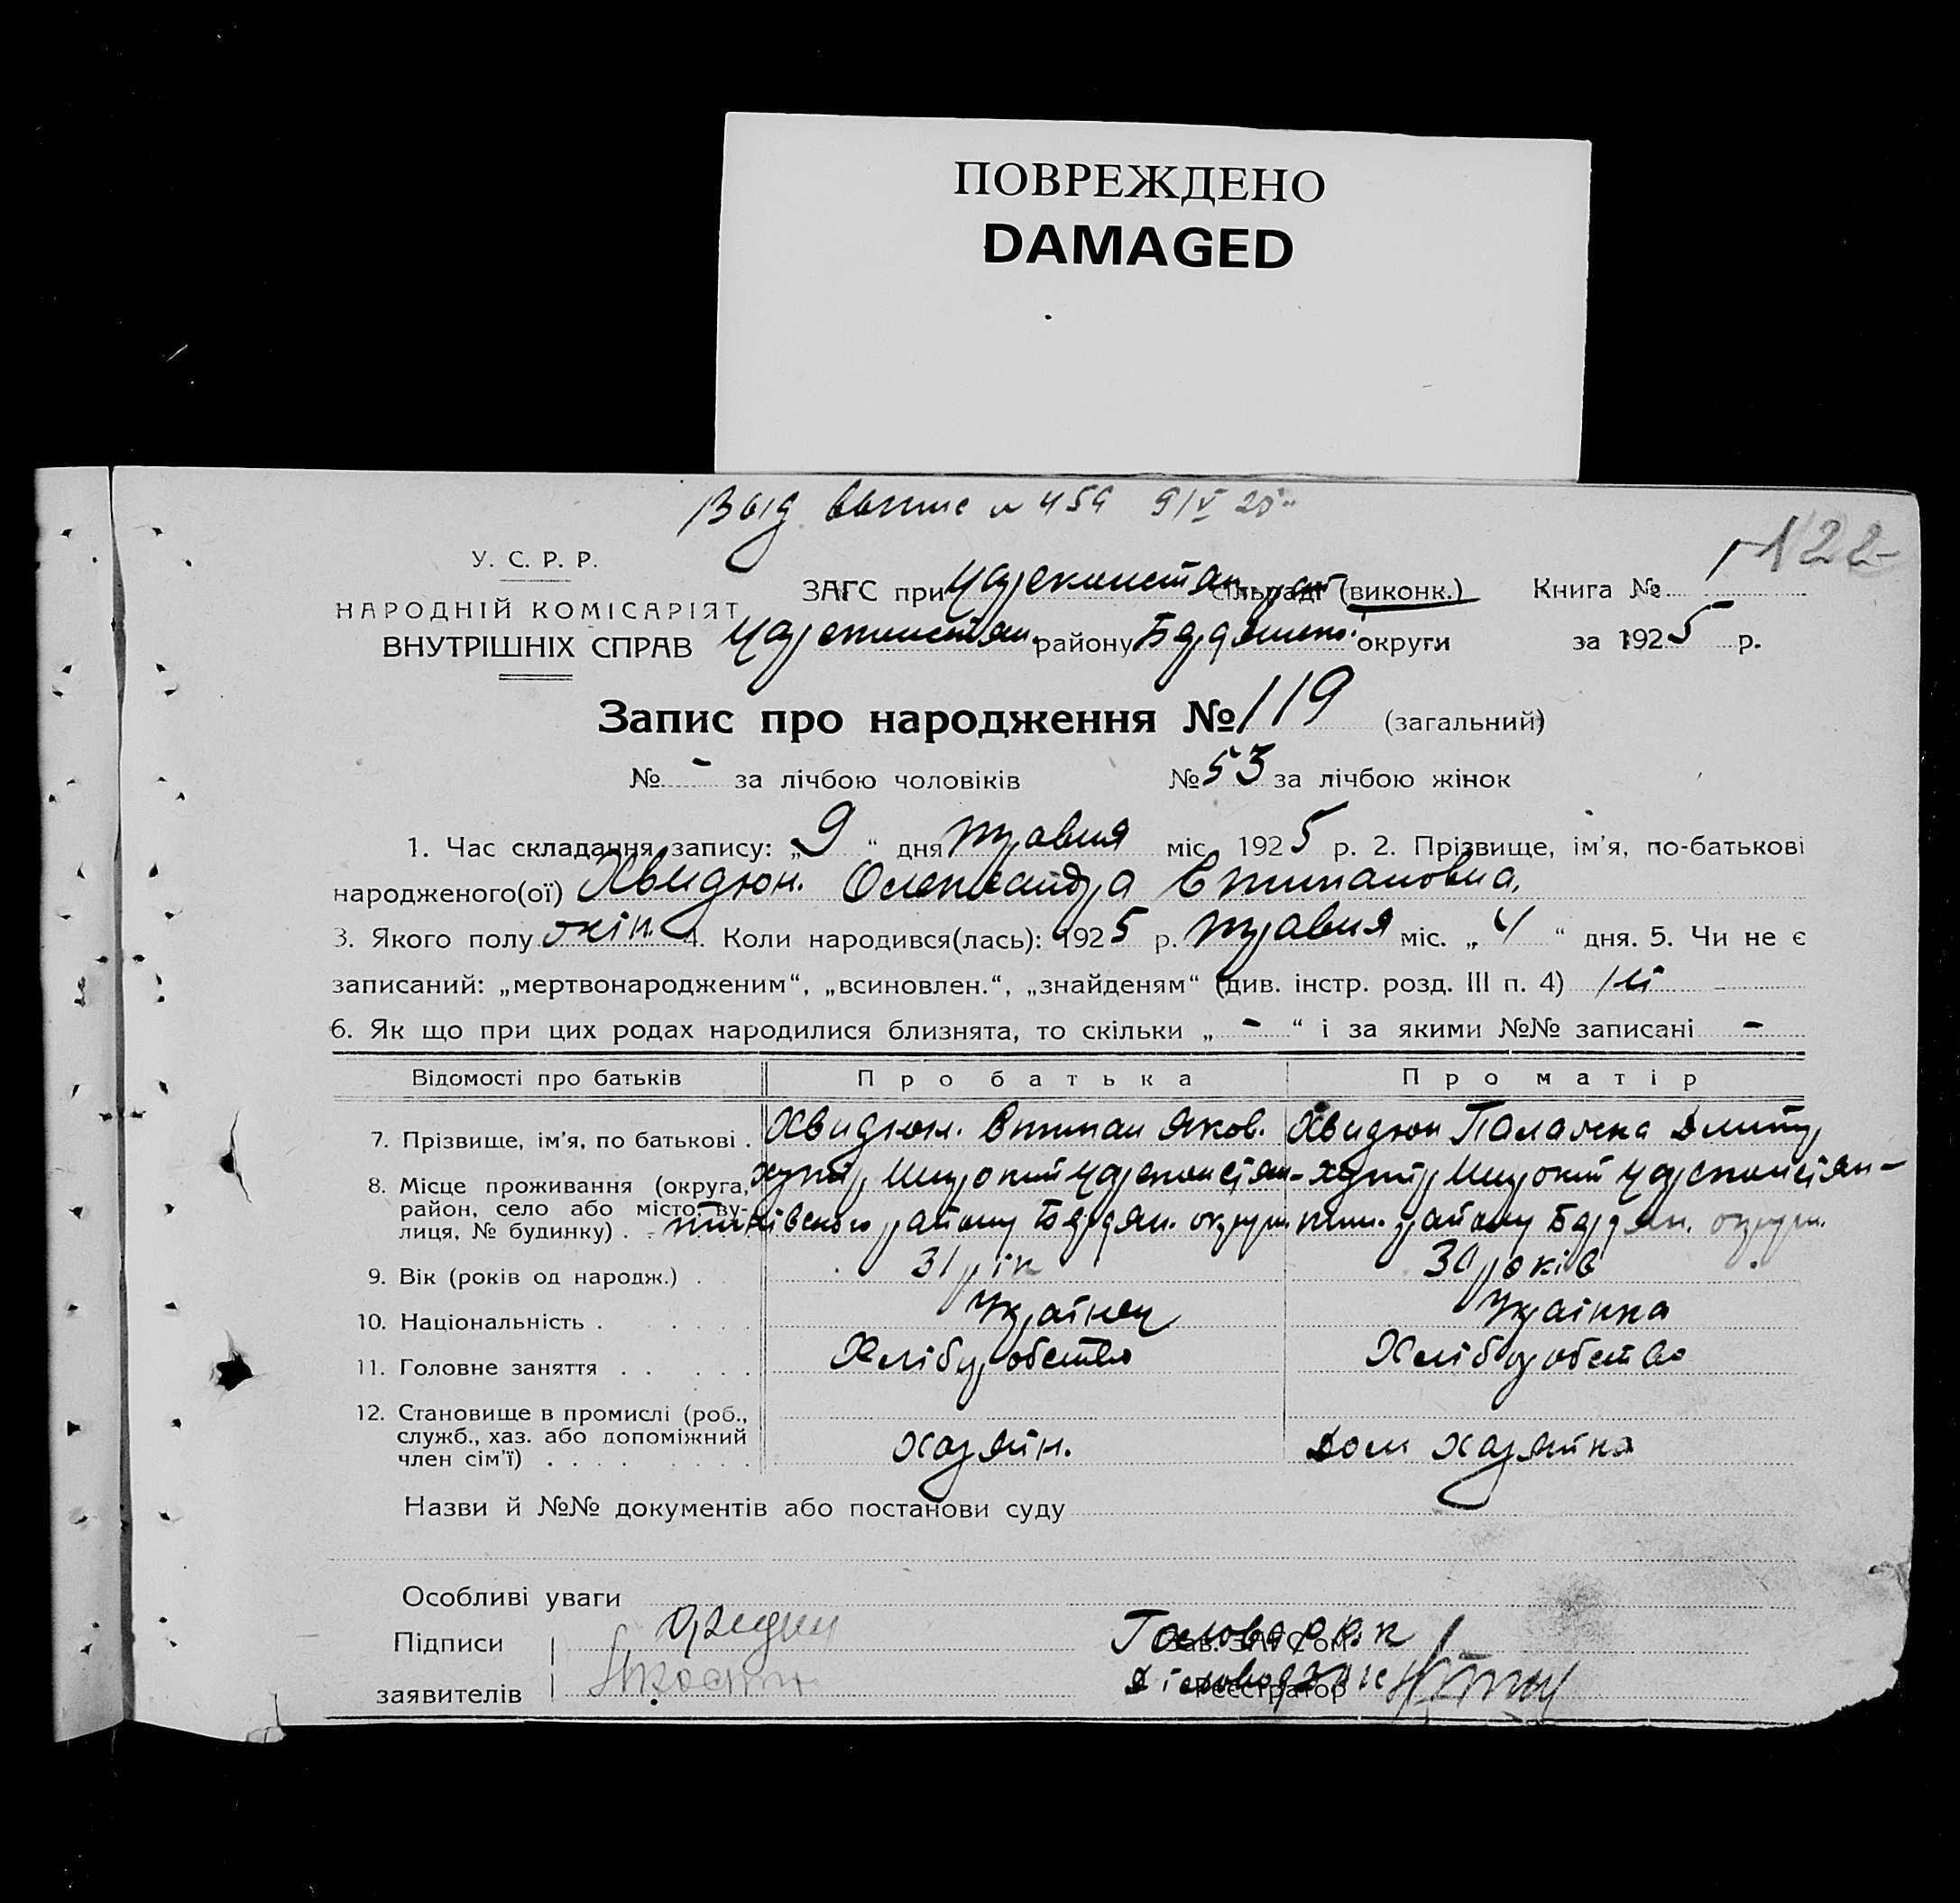 ПОВРЕЖДЕНО
DAMAGED
Выд. выпис № 459 9/V 25
122
У. С. Р. Р.
НАРОДНІЙ КОМІСАРІЯТ
ВНУТРІШНІХ СПРАВ
ЗАГС при Цареконстан сільраді (виконк.) Книга № 1
Цареконстян. району Бердянської округи за 1925 р.
Запис про народження № 119 (загальний)
№ - за лічбою чоловіків № 53 за лічбою жінок
1. Час складання запису: „9“ дня травня міс. 1925 р. 2. Прізвище, ім’я, по-батькові
народженого(ої) Хвидюн. Олександра Степановна,
3. Якого полу жін. 4. Коли народився(лась): 1925 р. травня міс. „4“ дня. 5. Чи не є
записаний: „мертвонародженим“, „всиновлен.“, „знайденям“ (див. інстр. розд. III п. 4) ні
6. Як що при цих родах народилися близнята, то скільки „-“ і за якими №№ записані -
Відомості про батьків Про батька Про матір
7. Прізвище, ім’я, по батькові . Хвидюн. Степан Яков. Хвидюн Палажка Дмитр
8. Місце проживання (округа, район, село або місто, вулиця, № будинку) . хутір Широкий Цареконстян-
тинівського району Бердян. округи
хутір Широкий Цареконстян-
тин. району Бердян. округи.
9. Вік (років од народж.) . 31 рік 30 років
10. Національність . Українец Українка
11. Головне заняття . . Хліборобство Хліборобство
12. Становище в промислі (роб., служб., хаз. або допоміжний член сім’ї) . . . . хазяїн. дом хазяйка
Назви й №№ документів або постанови суду
Особливі уваги
Підписи Зав. ЗАГС’ом Голова
заявителів Реєстратор Діловод